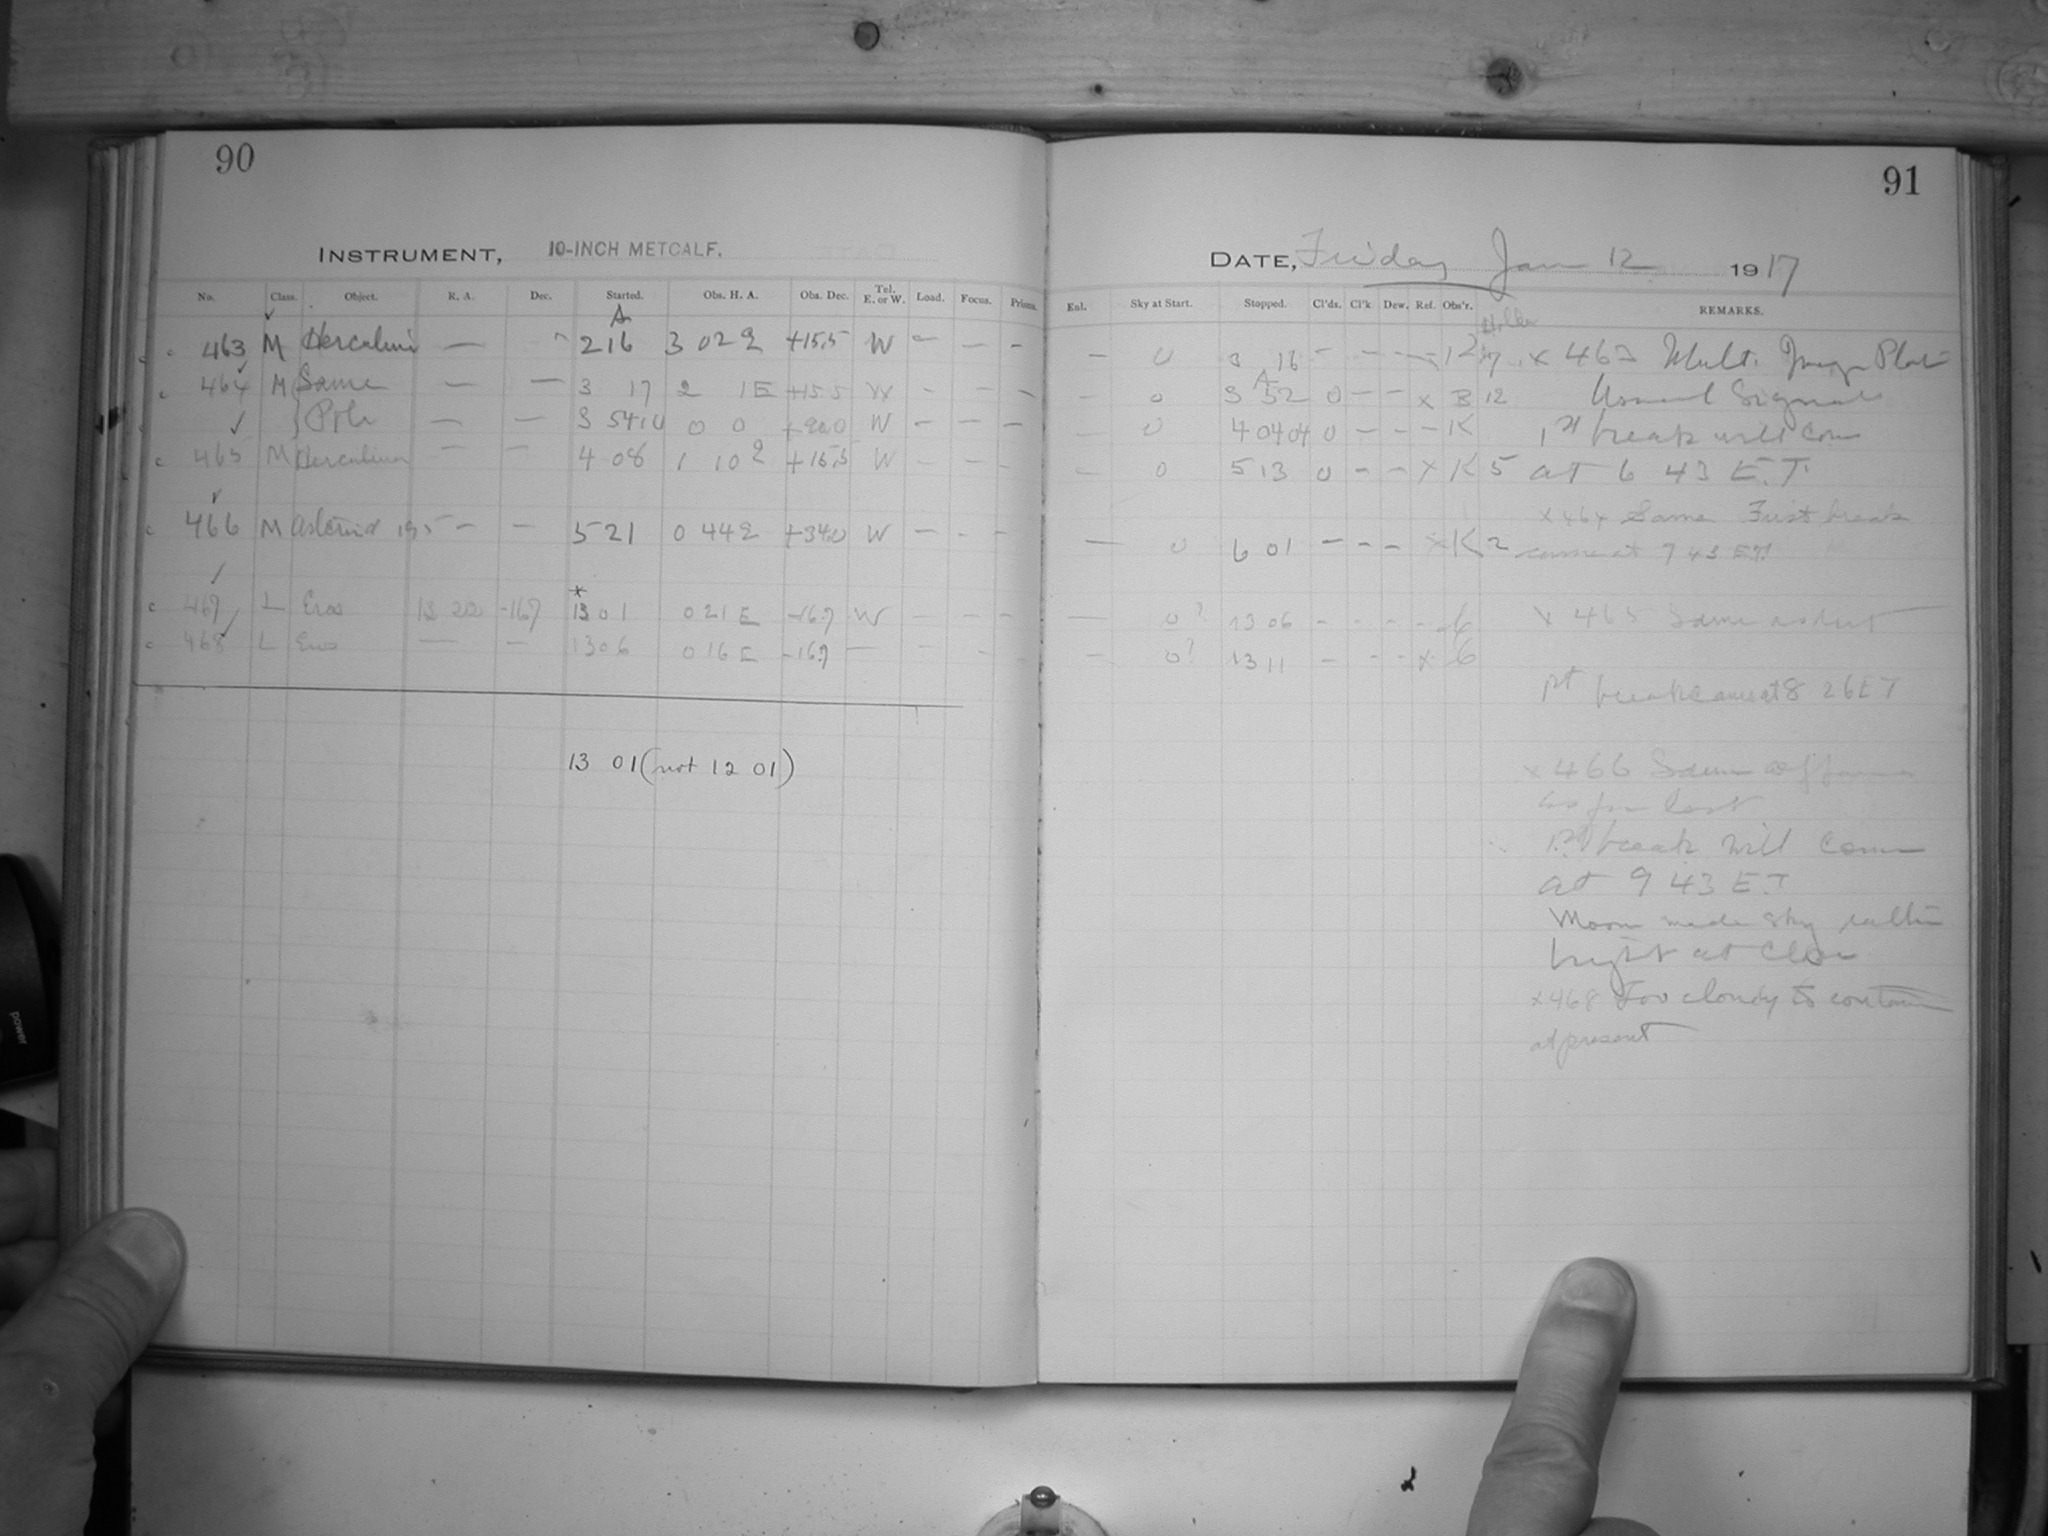 90
INSTRUMENT, 10-INCH METCALF.
No. Class. Object. R. A. Dec. Started. Obs. H. A. Obs. Dec. Tel. E. or W. Load. Focus. Prisms.
A
463 M — 2 16 3 02 E +15.5 W — — —
464 M Same — — 3 17 2 1 E +15.5 W - - —
Pole — — 3 54 10 0 0 +90.0 W — — —
465 M Herculina — — 4 08 1 10 E +15.5 W — — -
466 M — — 5 21 0 44 E +34.0 W — - -
*
467 L Eros 13 22 -16.7 13 01 0 21 E -16.7 W — — —
468 L Eros — — 13 06 0 16 E -16.7 — — - -
13 01 (not 12 01)
91
DATE, Friday Jan 12 1917
Enl. Sky at Start. Stopped. Cl'ds. Cl'k Dew. Ref. Obs'r. REMARKS.
— 0 3 16 - — — x 463 Mult. Image Plate
A
— 0 3 52 0 — — x B 12 Usual Signals
— 0 4 04 04 0 — — — K 1st break will come
— 0 5 13 0 — — x K 5 at 6 43 E.T.
x 464 Same First break
— 0 6 01 — — — x K 2 came at 7 43 ET
— 0? 13 06 - - - - 6 x 465 Same as last
— 0? 13 11 — - - x 6
1st break came at 8 26 ET
x 466 Same
as for last
1st break will come
at 9 43 E.T
Moon made sky rather
bright at close
x 468 Too cloudy to continue
at present
power